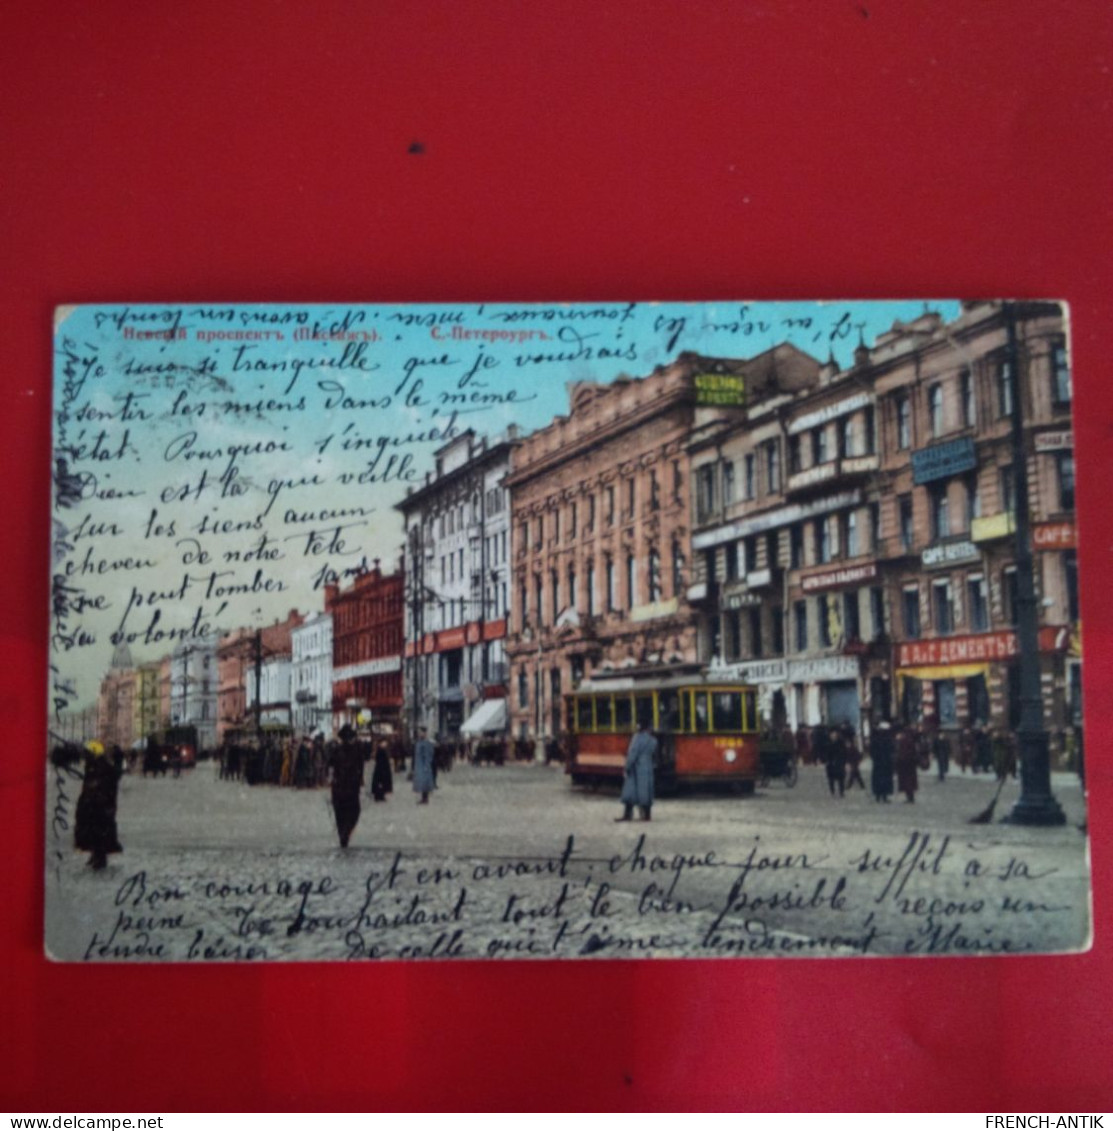 Невскій проспектъ (Пассажъ). С.-Петербургъ.
J'ai reçu les journaux, merci. N. avons un temps
épouvantable
Je suis si tranquille que je voudrais
sentir les miens dans le même
état. Pourquoi s'inquiéter
Dieu est là qui veille
sur les siens aucun
cheveu de notre tête
ne peut tomber sans
sa volonté
Bon courage et en avant, chaque jour suffit à sa
peine Te souhaitant tout le bien possible, reçois un
tendre baiser De celle qui t'aime tendrement Marie
ДЕМЕНТЬЕ
CAFE
FRENCH-ANTIK